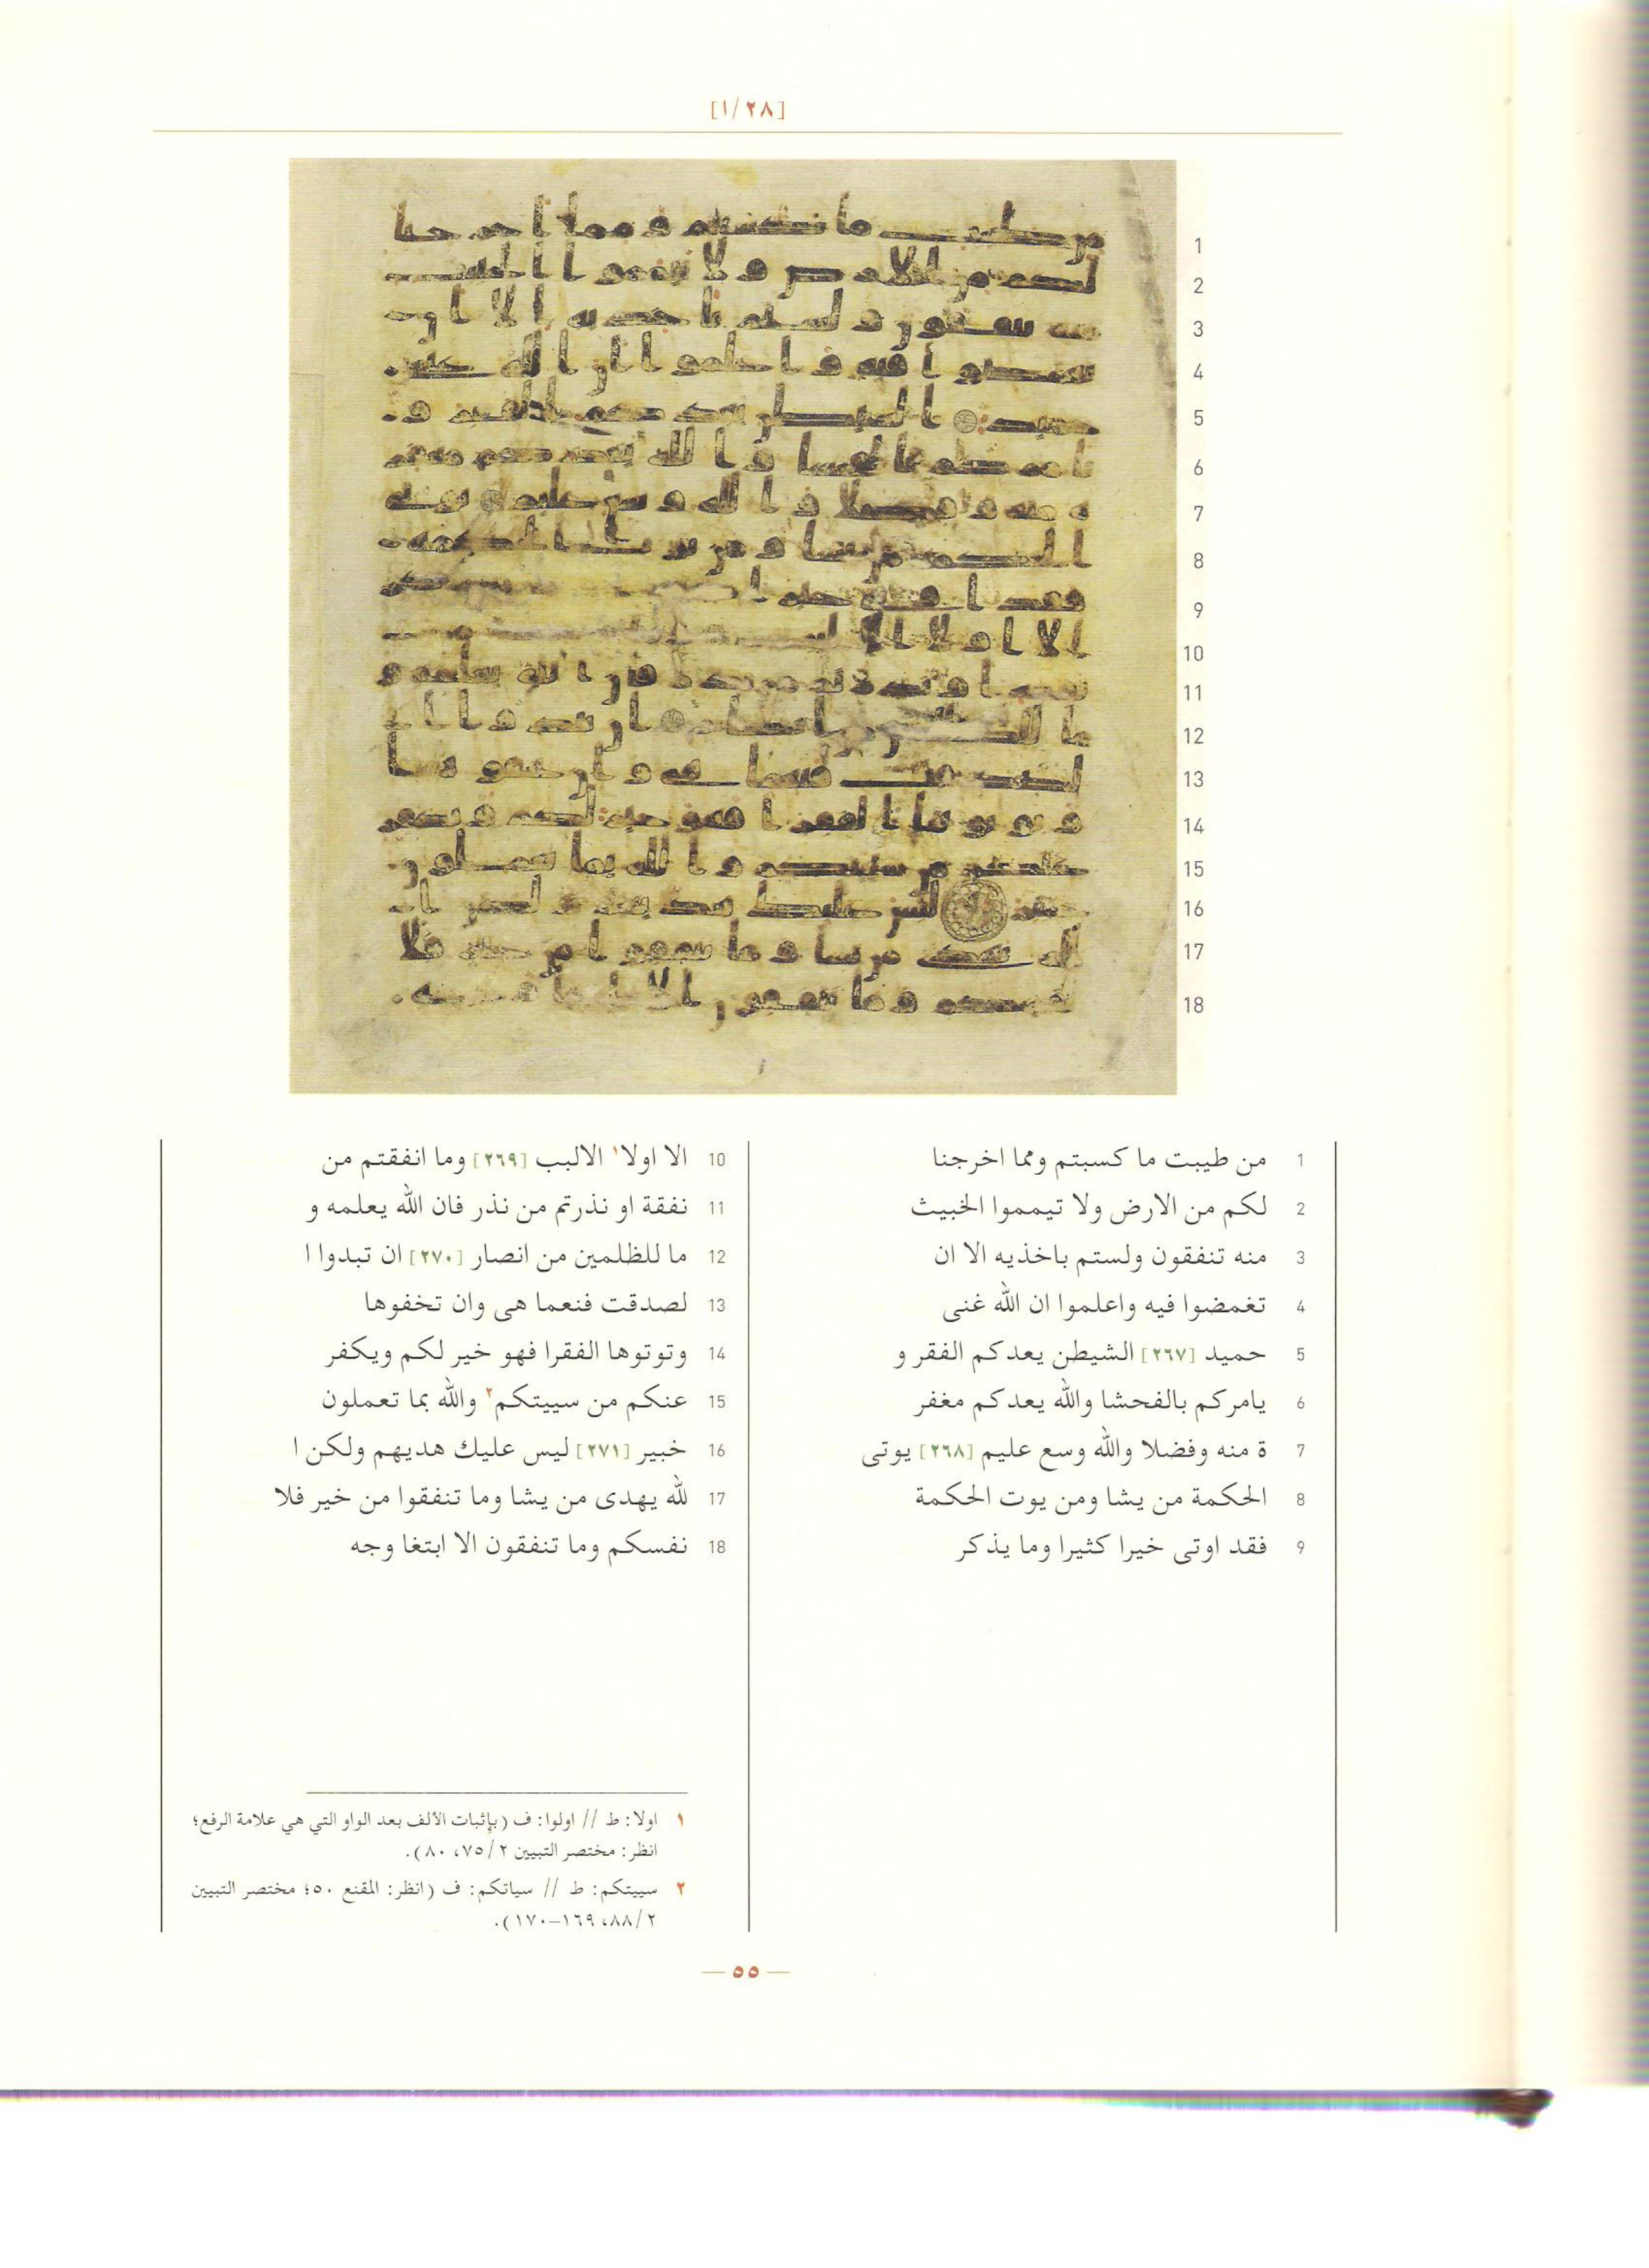 [١/٢٨]
1 من طيبت ما كسبتم ومما اخرجنا
2 لكم من الارض ولا تيمموا الخبيث
3 منه تنفقون ولستم باخذيه الا ان
4 تغمضوا فيه واعلموا ان الله غنى
5 حميد [٢٦٧] الشيطن يعدكم الفقر و
6 يامركم بالفحشا والله يعدكم مغفر
7 ة منه وفضلا والله وسع عليم [٢٦٨] يوتى
8 الحكمة من يشا ومن يوت الحكمة
9 فقد اوتى خيرا كثيرا وما يذكر
10 الا اولا١ الالبب [٢٦٩] وما انفقتم من
11 نفقة او نذرتم من نذر فان الله يعلمه و
12 ما للظلمين من انصار [٢٧٠] ان تبدوا ا
13 لصدقت فنعما هى وان تخفوها
14 وتوتوها الفقرا فهو خير لكم ويكفر
15 عنكم من سييتكم٢ والله بما تعملون
16 خبير [٢٧١] ليس عليك هديهم ولكن ا
17 لله يهدى من يشا وما تنفقوا من خير فلا
18 نفسكم وما تنفقون الا ابتغا وجه
١ اولا: ط // اولوا: ف (بإثبات الألف بعد الواو التي هي علامة الرفع؛
انظر: مختصر التبيين ٢/٧٥، ٨٠).
٢ سييتكم: ط // سياتكم: ف (انظر: المقنع ٥٠؛ مختصر التبيين
٢/٨٨، ١٦٩–١٧٠).
— ٥٥ —